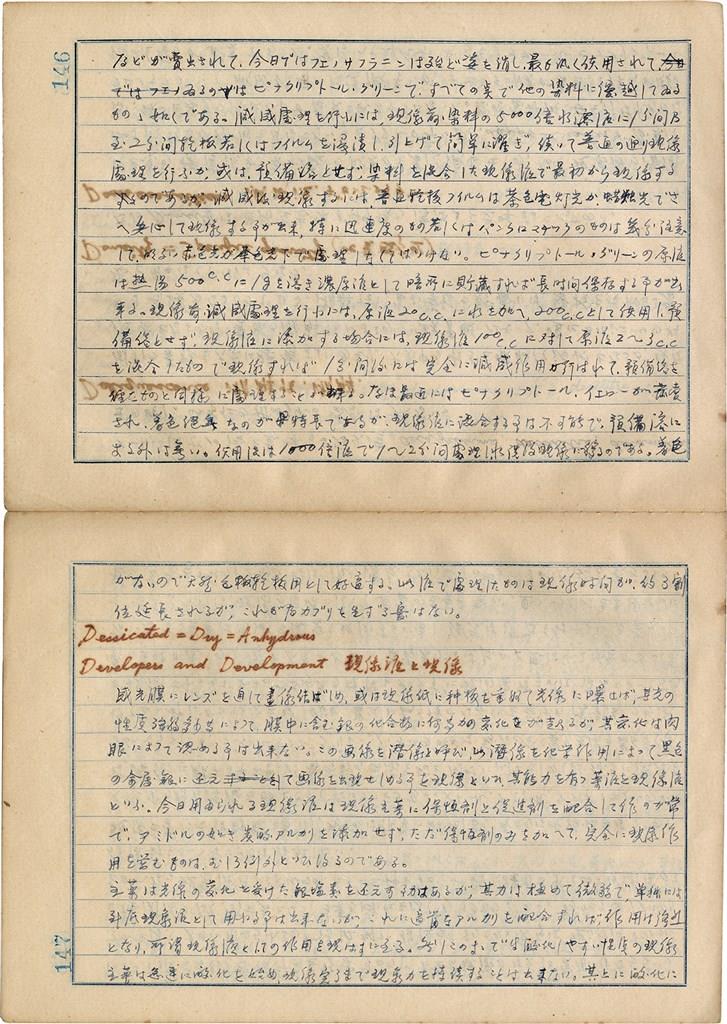 146
などが賣出されて、今日ではフェノサフラニンは殆ど姿を消し、最も広く使用されて
ゐるのは ピナクリプトール・グリーンで、すべての点で他の染料に優越してゐる
もの、如くである。減感處理を行ふには、現像前 染料の5000倍水溶液に1分间乃
至2分间乾板若くはフイルムを浸漬し、引上げて簡単に濯ぎ、続いて普通の通り現像
處理を行ふか、或は、預備浴とせず、染料を混合した現像液で最初から現像する
するのであるが、減感後現像するには、普通乾板フイルムは茶色電灯光か蝋燭光でさ
へ安心して現像する事が出来、特に迅速度のもの若くはパンクロマチックのものは幾分注意
して、明るい赤色光か 下で處理しなければいけない。ピナクリプトール・グリーンの原液
は熱湯500c.c.に1gを溶き濃原液として暗所に貯蔵すれば長时间保存する事が出
来る。現像前減感處理を行ふには、原液20c.c.に水を加へ、200c.c.として使用し、預
備浴とせず、現像液に添加する場合には、現像液100c.c.に対して原液2〜3c.c.
を混合したもので現像すれば1分间後には完全に減感作用が行はれて、預備浴を
経たものと同様に處理することが 。なほ最近にはピナクリプトール・イエローが發賣
され、着色絶無なのが特長であるが、現像液に混合する事は不可能で、預備浴に
よる外は無い。使用法は1000倍液で1〜2分间處理し水洗後現像に移るのである。着色
がないので天然色乾板用として好適する。此液で處理したものは現像时间が、約3割
位延長されるが、これが為カブリを生ずる憂はない。
Dessicated = Dry = Anhydrous
Developers and Development 現像液と現像
感光膜にレンズを通して畫像を結ばしめ、或は現像紙に種板を重ねて光線に曝せば、其光の
性質強弱多少によつて、膜中に含む銀の化合物に何等かの変化を 起るが、其変化は肉
眼によつて認める事は出来ない。この画像を潜像と呼び、此潜像を化学作用によつて黒色
の金属銀に還元 して画像を出現せしめる事を現像といひ、其能力を有つ薬液を現像液
といふ。今日用ゐられる現像液は現像主薬に保恒剤と促進剤を配合して作るのが常
で、アミドルの如き炭酸アルカリを添加せず、ただ保恒剤のみを加へて、完全に現像作
用を営むものは、むしろ例外といひ得るのである。
主薬は光線の変化を受けた銀塩類を還元する力はあるが、其力は極めて微弱で、単独には
到底現像液として用ゐる事は出来ないが、これに適當なアルカリを配合すれば作用は強烈
となり、所謂現像液としての作用を現はすに至る。然しこのまゝでは酸化しやすい性質の現像
主薬は急速に酸化を始め、現像完了まで現像力を持続することは出来ない。其上に酸化に
147